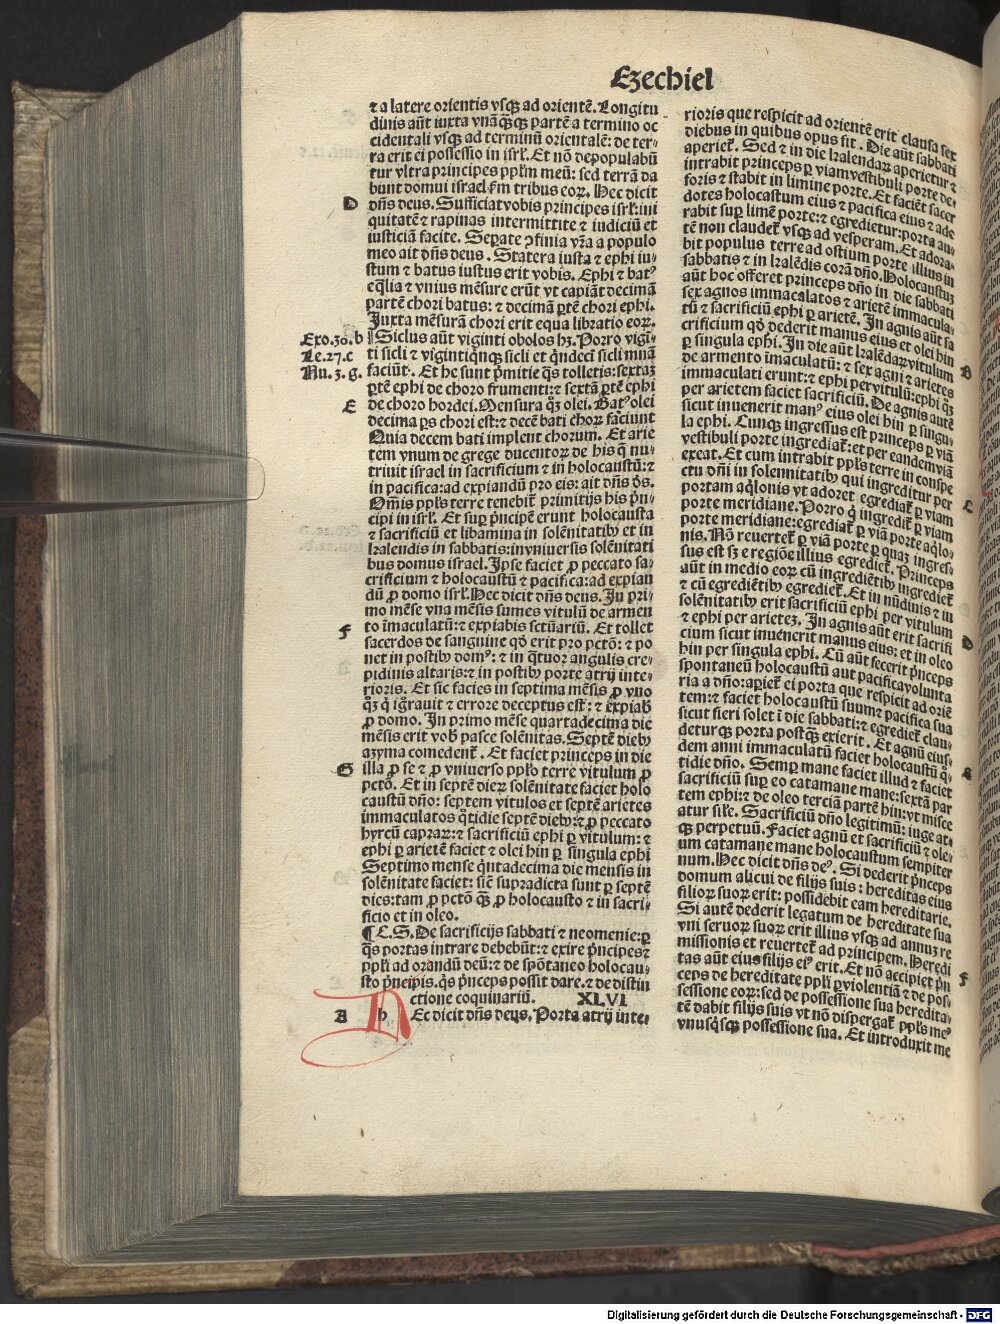 Ezechiel
⁊ a latere orientis vsq; ad oriente᷒. Longitu
dinis aūt iuxta vnāq̄q; partē a termino oc
cidentali vsq; ad terminū orientalē: de ter⸗
ra erit ei possessio in isrl'. Et nō depopulabū
tur vltra principes ppl'm meū: sed terrā da
bunt domui israel s'm tribus eoꝝ. Hec dicit
D dn̄s deus. Sufficiat vobis principes isrl': ini
quitatē ⁊ rapinas intermittite ⁊ iudiciū et
iusticiā facite. Sepate ꝯfinia vr̄a a populo
meo ait dn̄s deus. Statera iusta ⁊ ephi iu⸗
stum ⁊ batus iustus erit vobis. Ephi ⁊ batꝰ
eq̄lia ⁊ vnius mēsure erūt vt capiāt decimā
partē chori batus: ⁊ decimā ꝑtē chori ephi.
Juxta mēsurā chori erit equa libratio eoꝝ.
Exo.30.b Siclus aūt viginti obolos hꝫ. Porro vigī⸗
Le.27.c ti sicli ⁊ vigintiqn̄q; sicli et qn̄decī sicli mnā
Nu.3.g. faciūt. Et he sunt pͥmitie q̄s tolletis: sextaꝫ
ꝑtē ephi de choro frumenti: ⁊ sextā ꝑtē ephi
E de choro hordei. Mensura qꝫ olei. Batꝰ olei
decima ꝑs chori est: ⁊ decē bati choꝝ faciunt
Quia decem bati implent chorum. Et arie
tem vnum de grege ducentoꝝ de his q̄ nu⸗
triuit israel in sacrificium ⁊ in holocaustū: ⁊
in pacifica: ad expiandū pro eis: ait dn̄s d's.
Om̄is ppl's terre tenebit᷒ primitijs his pͥn⸗
cipi in isrl'. Et suꝑ pͥncipē erunt holocausta
⁊ sacrificiū et libamina in solēnitatibꝰ et in
kalendis in sabbatis: in vniuersis solēnitati
bus domus israel. Ipse faciet ꝓ peccato sa⸗
crificium ⁊ holocaustū ⁊ pacifica: ad expian
dū ꝓ domo isrl'. Hec dicit dn̄s deus. In pri⸗
mo mēse vna mēsis sumes vitulū de armen
to īmaculatū: ⁊ expiabis sctūariū. Et tollet
F sacerdos de sanguine qd' erit pro pctō: ⁊ po
net in postibꝰ domꝰ: ⁊ in q̄tuor angulis cre⸗
pidinis altaris: ⁊ in postibꝰ porte atrij inte⸗
rioris. Et sic facies in septima mēsis ꝓ vno
qꝫ qͥ ignorauit ⁊ errore deceptus est: ⁊ expiab'
ꝓ domo. In primo mēse quartadecima die
mēsis erit vob' pasce solēnitas. Septē diebꝰ
azyma comedent᷒. Et faciet princeps in die
G illa ꝓ se ⁊ ꝓ vniuerso pplo terre vitulum ꝓ
pctō. Et in septē dieꝝ solēnitate faciet holo
caustū dn̄o: septem vitulos et septē arietes
immaculatos q̄tidie septē diebꝰ: ⁊ ꝓ peccato
hyrcū capraꝝ: ⁊ sacrificiū ephi ꝑ vitulum: ⁊
ephi ꝑ arietē faciet ⁊ olei hin ꝑ singula ephi
Septimo mense qͥntadecima die mensis in
solēnitate faciet: sic̄ supradicta sunt ꝑ septē
dies: tam ꝓ pctō q̄ꝫ ꝓ holocausto ⁊ in sacri⸗
ficio et in oleo.
¶ C.S. De sacrificijs sabbati ⁊ neomenie: ꝑ
q̄s portas intrare debebūt: ⁊ exire pͥncipes ⁊
ppl'i ad orandū deū: ⁊ de spōtaneo holocau⸗
sto pͥncipis. q̄s pͥnceps possit dare. ⁊ de distin
ctione coquinariū. XLVI
A h Ec dicit dn̄s deus. Porta atrij inte⸗
rioris que respicit ad orientē erit clausa sex
diebus in quibus opus fit. Die aūt sabbati
aperiet᷒. Sed ⁊ in die kalendaꝝ aperietur ⁊
intrabit princeps ꝑ viam vestibuli porte de⸗
foris ⁊ stabit in limine porte. Et faciēt sacer
dotes holocaustum eius ⁊ pacifica eius ⁊ ado
rabit suꝑ limē porte: ⁊ egredietur: porta au⸗
tē non claudet᷒ vsq; ad vesperam. Et adora⸗
bit populus terre ad ostium porte illius in
sabbatis ⁊ in kalēdis corā dn̄o. Holocaustuꝫ
aūt hoc offeret princeps dn̄o in die sabbati
sex agnos immaculatos ⁊ arietē immacula⸗
tū ⁊ sacrificiū ephi ꝑ arietē. In agnis aūt sa
crificium qd' dederit manus eius et olei hin
ꝑ singula ephi. In die aūt kalēdaꝝ vitulum
de armento īmaculatū: ⁊ sex agni ⁊ arietes B
immaculati erunt: ⁊ ephi per vitulū: ephi qꝫ
per arietem faciet sacrificiū. De agnis autē
sicut inuenerit manꝰ eius olei hin ꝑ singu⸗
la ephi. Cunq; ingressus est princeps ꝑ viā
vestibuli porte ingrediat᷒: et per eandem viā
exeat. Et cum intrabit ppl's terre in conspe
ctu dn̄i in solennitatibꝰ qui ingreditur per
portam aq̄lonis vt adoret egrediat᷒ ꝑ viam
porte meridiane. Porro qͥ ingredit᷒ ꝑ viam C
porte meridiane: egrediat᷒ ꝑ viā porte aq̄lo⸗
nis. Nō reuertet᷒ ꝑ viā porte ꝑ quaꝫ ingres⸗
sus est sꝫ e regiōe illius egrediet᷒. Princeps
aūt in medio eoꝝ cū ingrediētibꝰ ingrediet᷒
⁊ cū egrediētibꝰ egrediet᷒. Et in nūdinis ⁊ in
solēnitatibꝰ erit sacrificiū ephi per vitulum
⁊ ephi per arieteꝫ. In agnis aūt erit sacrifi D
cium sicut inuenerit manus eius: et in oleo
hin per singula ephi. Cū aūt fecerit pͥnceps
spontaneū holocaustū aut pacifica volunta
ria a dn̄o: apiet᷒ ei porta que respicit ad oriē
tem: ⁊ faciet holocaustū suum ⁊ pacifica sua
sicut fieri solet ī die sabbati: ⁊ egrediet᷒ clau⸗
deturq; porta postq̄ꝫ exierit. Et agnū eius⸗
dem anni immaculatū faciet holocaustū q̄⸗ E
tidie dn̄o. Semꝑ mane faciet illud ⁊ faciet
sacrificiū suꝑ eo catamane mane: sextā par
tem ephi: ⁊ de oleo terciā partē hin: vt misce
atur sil'e. Sacrificiū dn̄o legitimū: iuge at⸗
q; perpetuū. Faciet agnū et sacrificiū ⁊ ole⸗
um catamane mane holocaustum sempiter
num. Hec dicit dn̄s deꝰ. Si dederit pͥnceps
domum alicui de filijs suis: hereditas eius
filioꝝ suoꝝ erit: possidebit eam hereditarie.
Si autē dederit legatum de hereditate sua
vni seruoꝝ suoꝝ erit illius vsq; ad annuꝫ re
missionis et reuertet᷒ ad principem. Heredi
tas aūt eius filijs eiꝰ erit. Et nō accipiet pͥn F
ceps de hereditate ppl'i ꝑ violentiā ⁊ de pos⸗
sessione eoꝝ: sed de possessione sua heredita⸗
tē dabit filijs suis vt nō dispergat᷒ ppl's meꝰ
vnusq̄sq; possessione sua. Et introduxit me
Digitalisierung gefördert durch die Deutsche Forschungsgemeinschaft - DFG